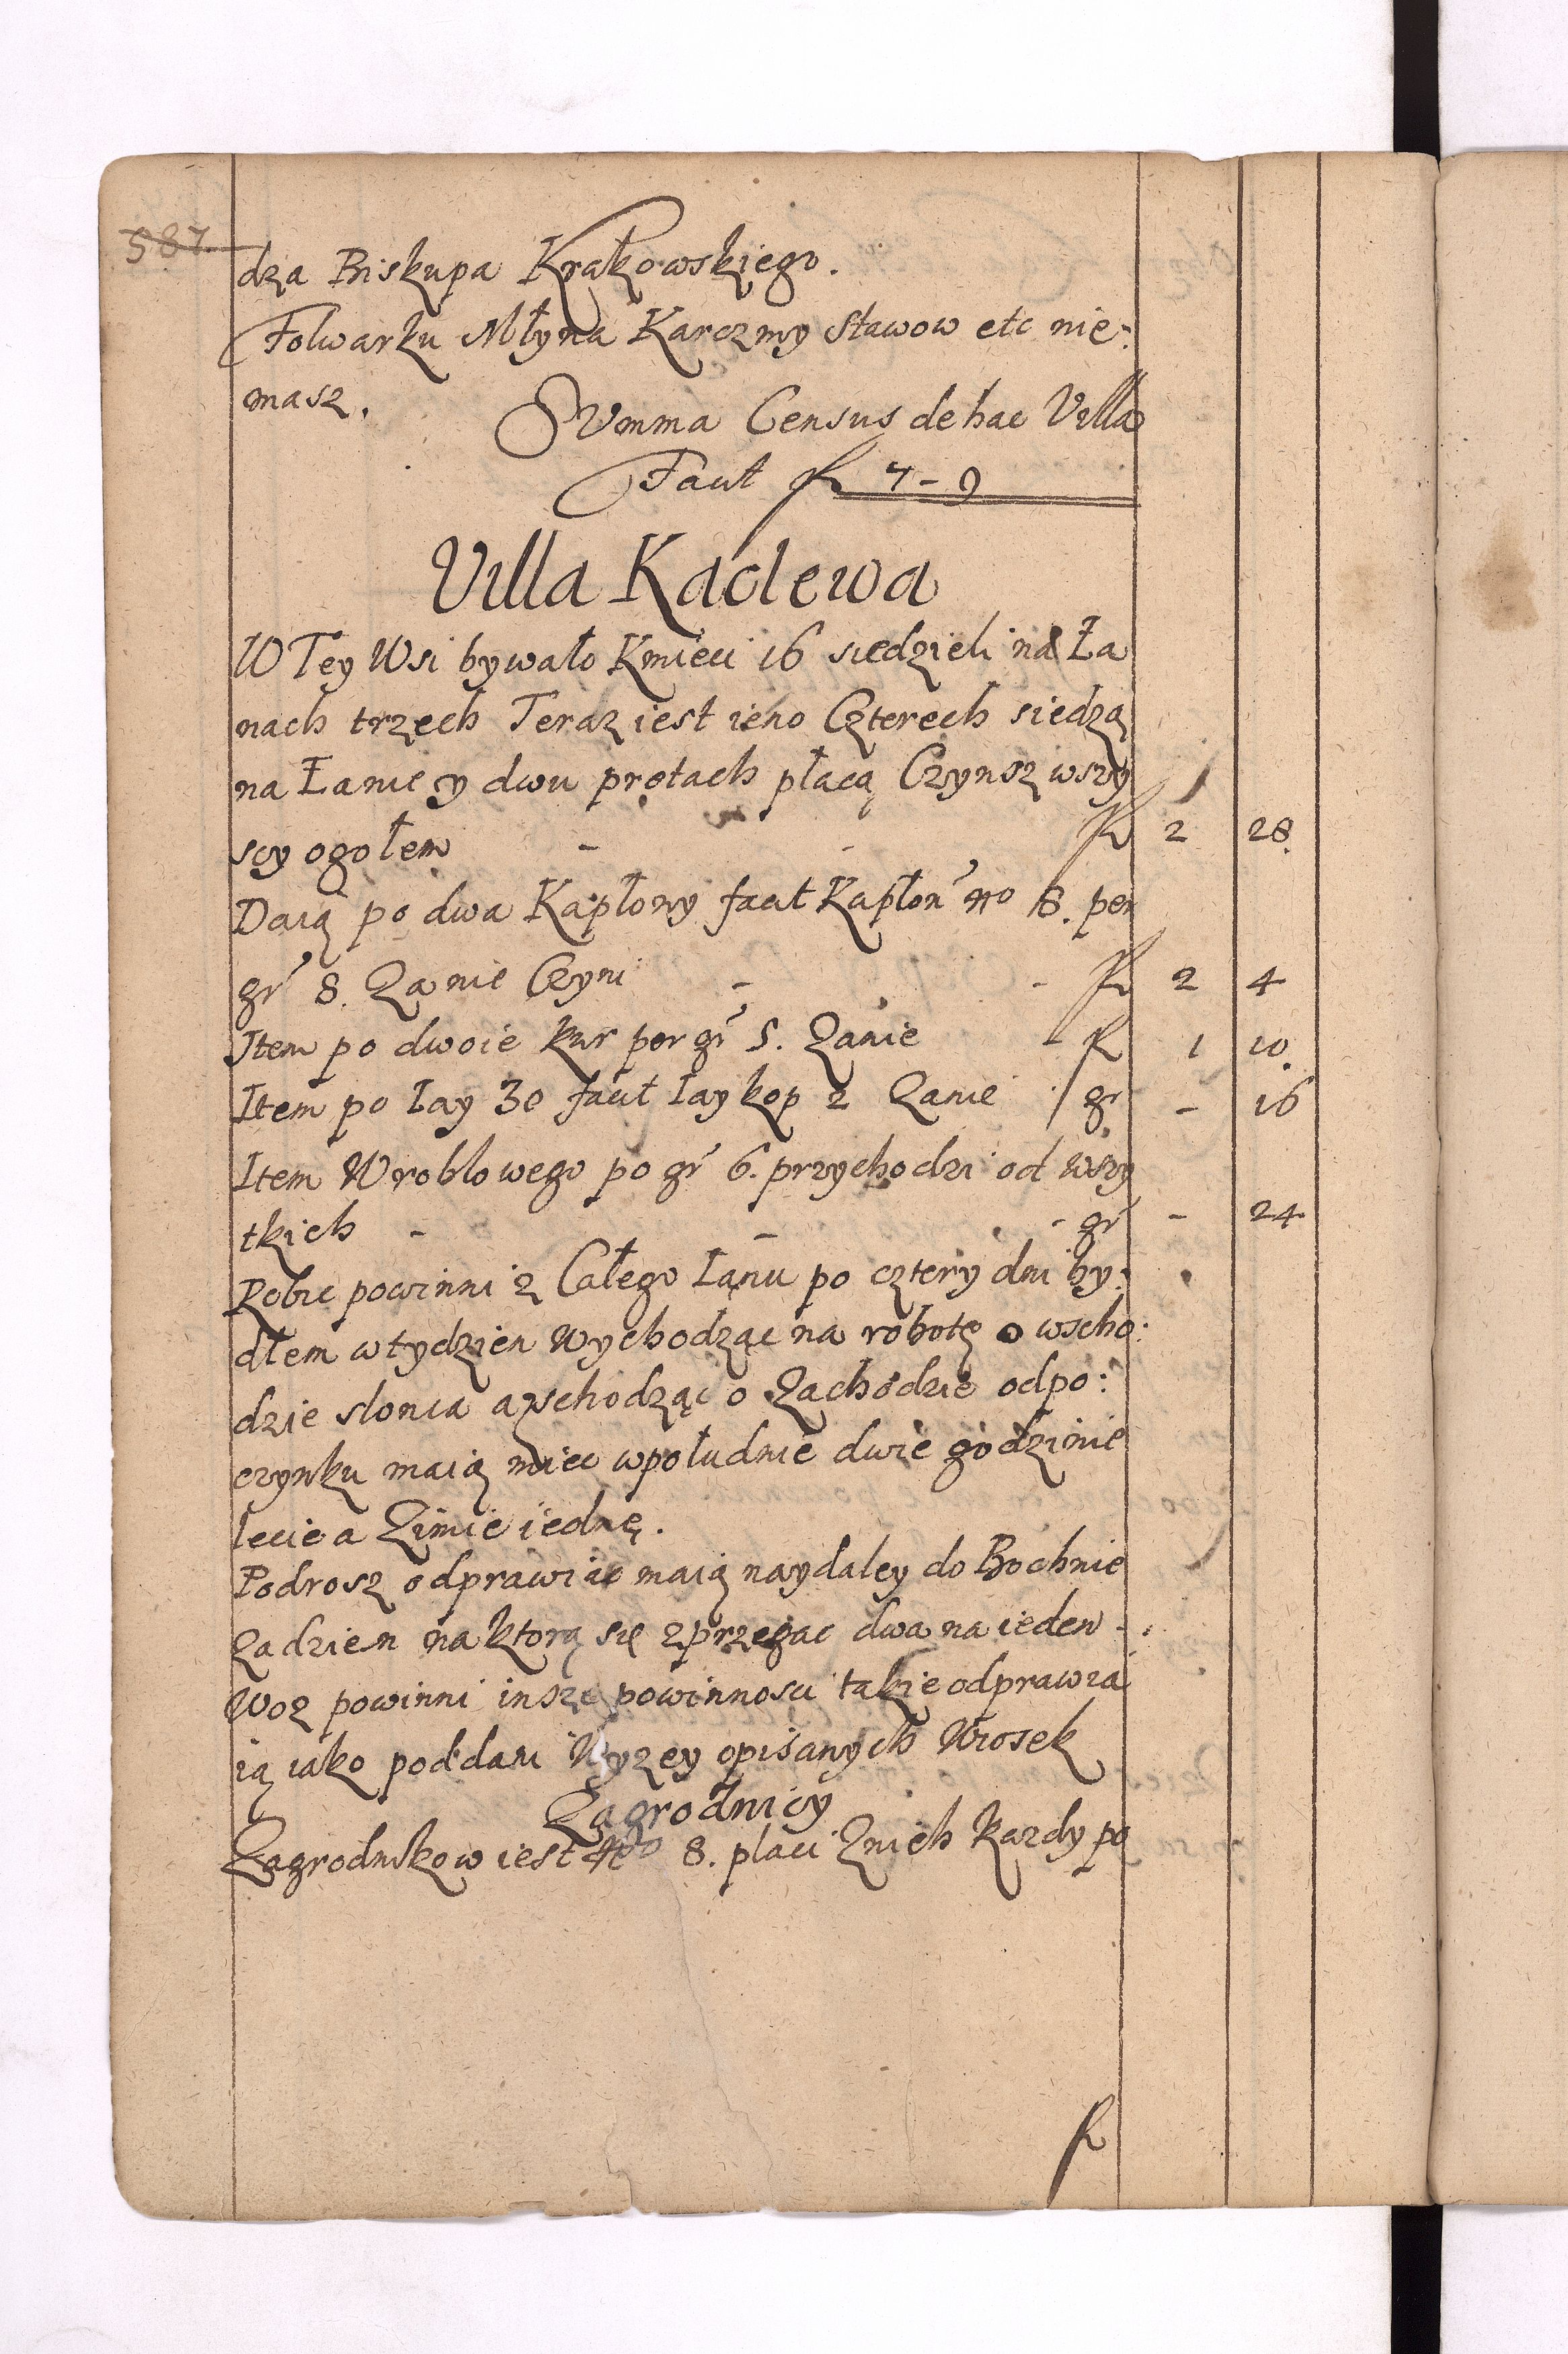 587.
dza Biskupa Krakowskiego.
Folwarku Młyna Karczmy stawow etc nie:
masz.
Summa Census de hac Villa
Facit fl 7 - 9
Villa Kaclewa
W Tey Wsi bywało Kmieci 16 siedzieli na Ła
nach trzech Teraz iest ieno Czterech siedzą
na Łanie y dwu prętach płacą Czynsz wszy
scy ogołem - - fl 2 28.
Daią po dwa Kapłony facit Kapłon No 8. per
gr 8. Zanie Czyni - - fl 2 4
Item po dwoie kur per gr 5. Zanie - fl 1 10.
Item po Iay 30 facit Iay kop 2 Zanie gr - 16
Item Wroblowego po gr 6. przychodzi od wszy
tkich - - - gr - 24
Robic powinni z Całego Łanu po cztery dni by:
dłem w tydzien Wychodząc na robotę o wscho:
dzie slonca a schodząc o Zachodzie odpo:
czynku maią miec wpołudnie dwie godzinie
lecie a Zimie iednę.
Podrosz odprawiac maią naydaley do Bochnie
za dzien na ktorą się zprzegac dwa na ieden
Woz powinni insze powinnosci takie odprawia
ią iako poddani Wyzey opisanych Wiosek
Zagrodnicy
Zagrodnikow iest No 8. placi Znich Kazdy po
fl